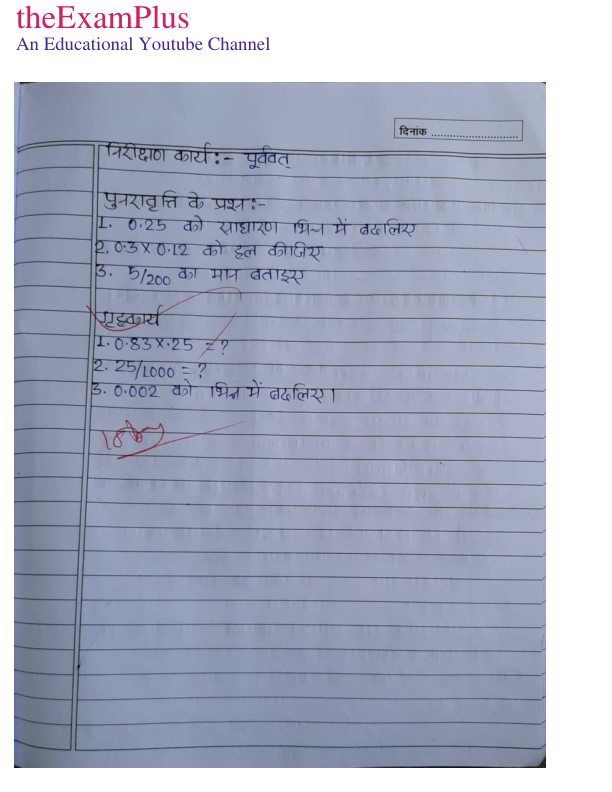 theExamPlus
An Educational Youtube Channel
दिनांक
निरीक्षण कार्य :- पूर्ववत्
पुनरावृत्ति के प्रश्न :-
1. 0.25 को साधारण भिन्न में बदलिए
2. 0.3 X 0.12 को हल कीजिए
3. 5/200 का मान बताइए
गृहकार्य
1. 0.83 X .25 = ?
2. 25/1000 = ?
3. 0.002 को भिन्न में बदलिए।